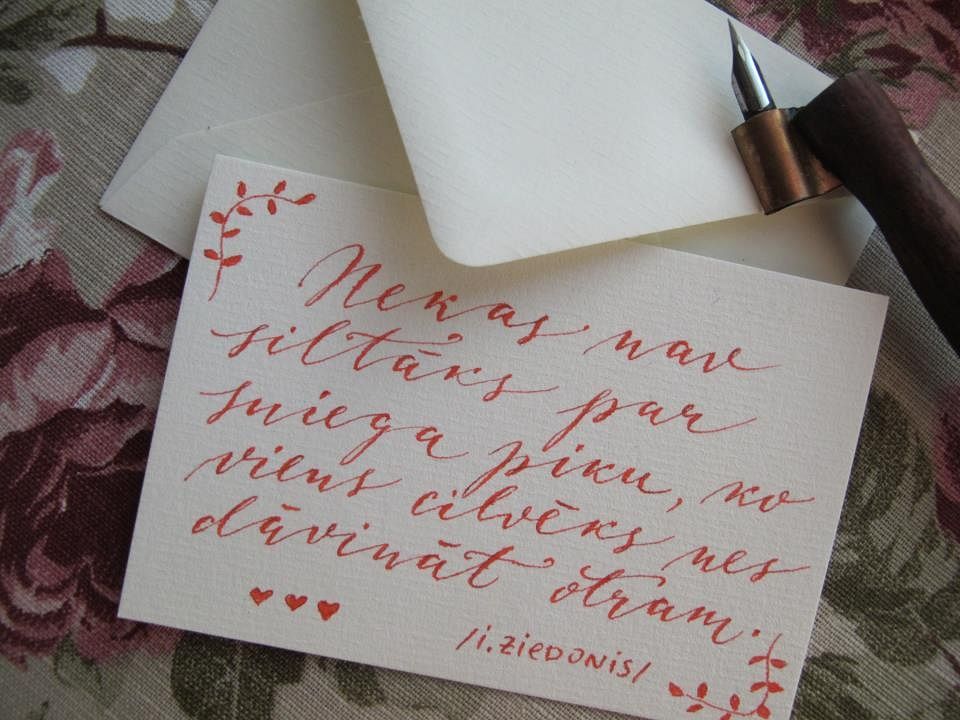 Nekas nav
siltāks par
sniega piku, ko
viens cilvēks nes
dāvināt otram.
/i.ZieDONis/